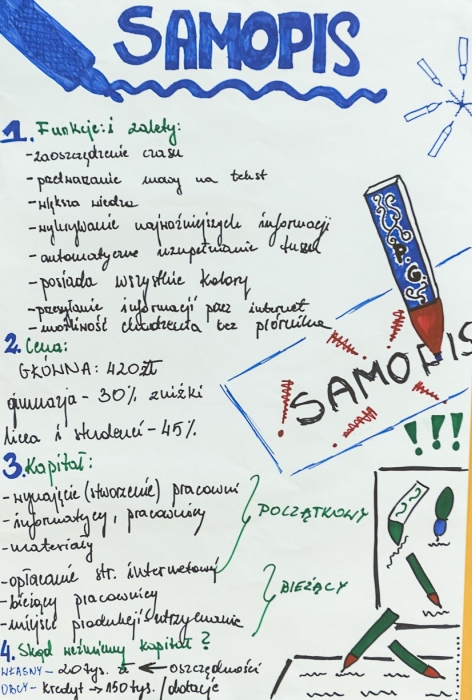 SAMOPIS
1. Funkcje i zalety:
- zaoszczędzenie czasu
- przetwarzanie mowy na tekst
- większa wiedza
- wykrywanie najważniejszych informacji
- automatyczne uzupełnianie tuszu
- posiada wszystkie kolory
- przesyłanie informacji przez internet
- możliwość chodzenia bez piórnika
2. Cena:
GŁÓWNA: 420zł
gimnazja - 30% zniżki
licea i studenci - 45%
SAMOPIS
!!!
3. Kapitał:
- wynajęcie (stworzenie) pracowni
- informatycy, pracownicy
- materiały
POCZĄTKOWY
- opłacanie str. internetowej
- bieżący pracownicy
- miejsce produkcji i utrzymanie
BIEŻĄCY
4. Skąd weźmiemy kapitał?
WŁASNY - 20 tys. zł ← oszczędności
OBCY - kredyt → 150 tys. / dotacje